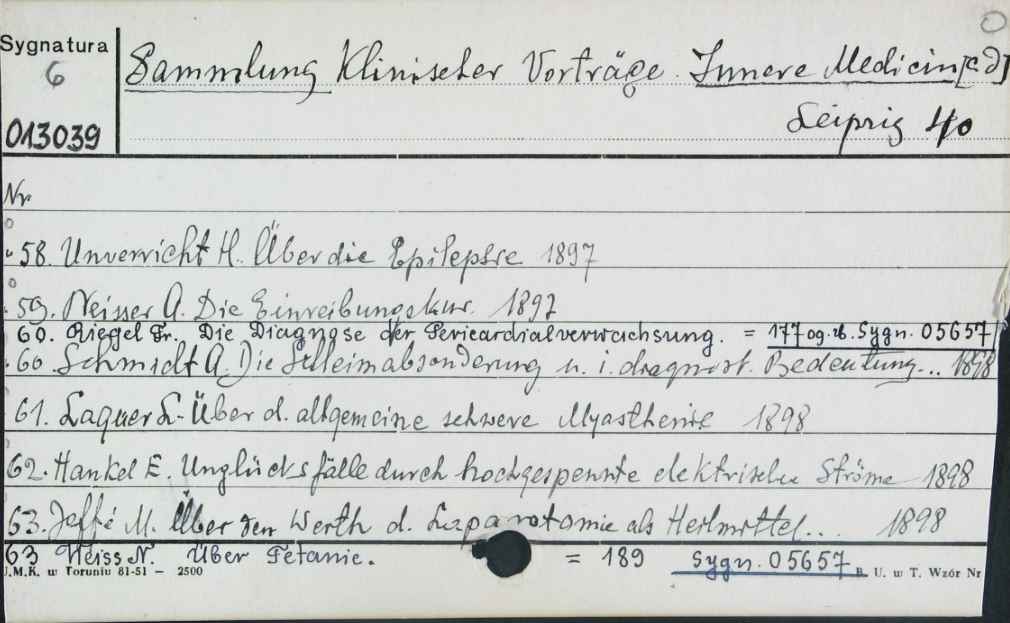 Sygnatura
6
013039
Sammlung Klinischer Vorträge. Innere Medicin [c.d]
Leipzig 40
Nr
58. Unverricht H. Über die Epilepsie 1897
59. Neisser A. Die Einreibungskur. 1897
60. Riegel Fr. Die Diagnose der Pericardialverwachsung. = 177 og. zb. Sygn. 05657
60. Schmidt A. Die Schleimabsonderung u. i. diagnost. Bedeutung... 1898
61. Laquer L. Über d. allgemeine schwere Myasthenie 1898
62. Hankel E. Unglücksfälle durch hochgespennte elektrische Ströme 1898
63. Jaffé M. Über den Werth d. Laparotomie als Heilmittel... 1898
63 Weiss N. Über Tetanie. = 189 Sygn. 05657
J.M.K. w Toruniu 81-51 – 2500 B. U. w T. Wzór Nr